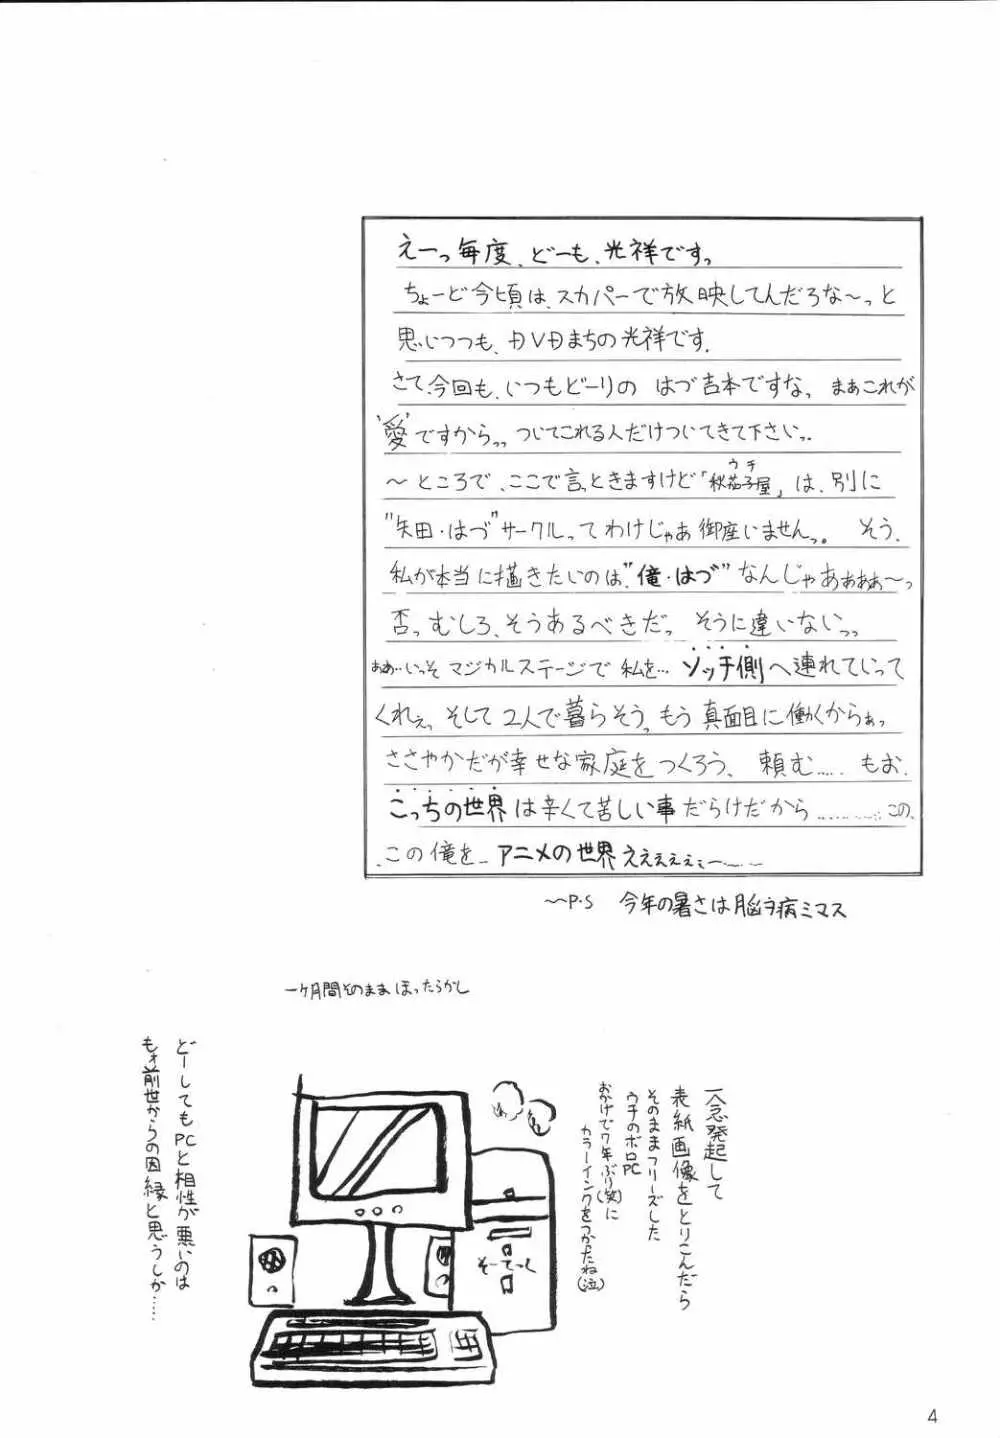 えーっ毎度、どーも、光祥ですっ
ちょーど今頃は、スカパーで放映してんだろな〜っと
思いつつも、DVDまちの光祥です.
さて、今回も、いつもどーりの はづ吉本ですなっ まあこれが
"愛"ですからっっ ついてこれる人だけついてきて下さいっ.
〜ところで、ここで言っときますけど「秋茄子屋」は、別に
ウチ
"矢田・はづ"サークルってわけじゃあ御座いませんっ。 そう.
私が本当に描きたいのは"俺・はづ"なんじゃあぁぁぁ〜っ
否っ むしろ、そうあるべきだっ そうに違いないっっ
ああ…いっそ マジカルステージで 私を… ソッチ側へ連れていって
くれぇ、そして 2人で暮らそうっ もう 真面目に働くからぁっ
ささやかだが幸せな家庭をつくろう、 頼む…… もお.
こっちの世界は辛くて苦しい事だらけだから………… この、
この俺を… アニメの世界へぇぇぇぇぇー……
〜P.S 今年の暑さは脳ヲ病ミマス
一ヶ月間そのままほったらかし
一念発起して
表紙画像をとりこんだら
そのままフリーズした
ウチのボロPC
おかげで7年ぶり(笑)に
カラーインクをつかったね(泣)
そーてっく
どーしてもPCと相性が悪いのは
もォ前世からの因縁と思うしか……
4